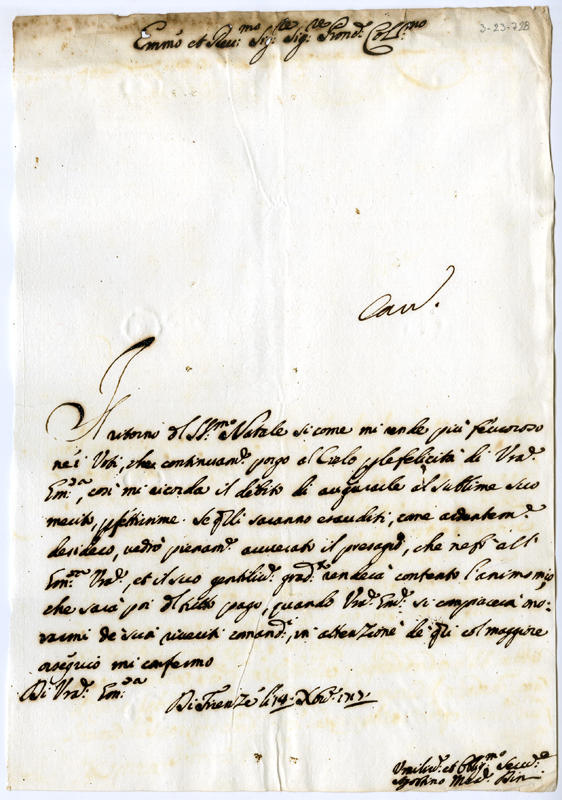 Emmo et Reu:mo Sig:re Sig:re Prone Coll:mo
3-23-728
Il ritorno del SS:mo Natale si come mi rende più feruoroso
nei Voti, che continuam:te porgo al Cielo p le felicità di Vra
Em:za, così mi ricorda il debito di augurarle al sublime suo
merito, pfettissime. Se qlli saranno esauditi, come ardentem:te
desidero, vedrò pienam:te auuerato il presagio, che nefò all'
Em:za Vra, et il suo gentiliss:o grad:to renderà contento l'animo mio,
che sarà poi del tutto pago, quando Vra Em:za si compiacerà ono-
rarmi de suoi riueriti comandi, in attenzione de qli col maggiore
ossequio mi confermo
Di Vra Em:za
Di Firenze li 14 Xbre
Umiliss:o et Oblig:mo Seru:re